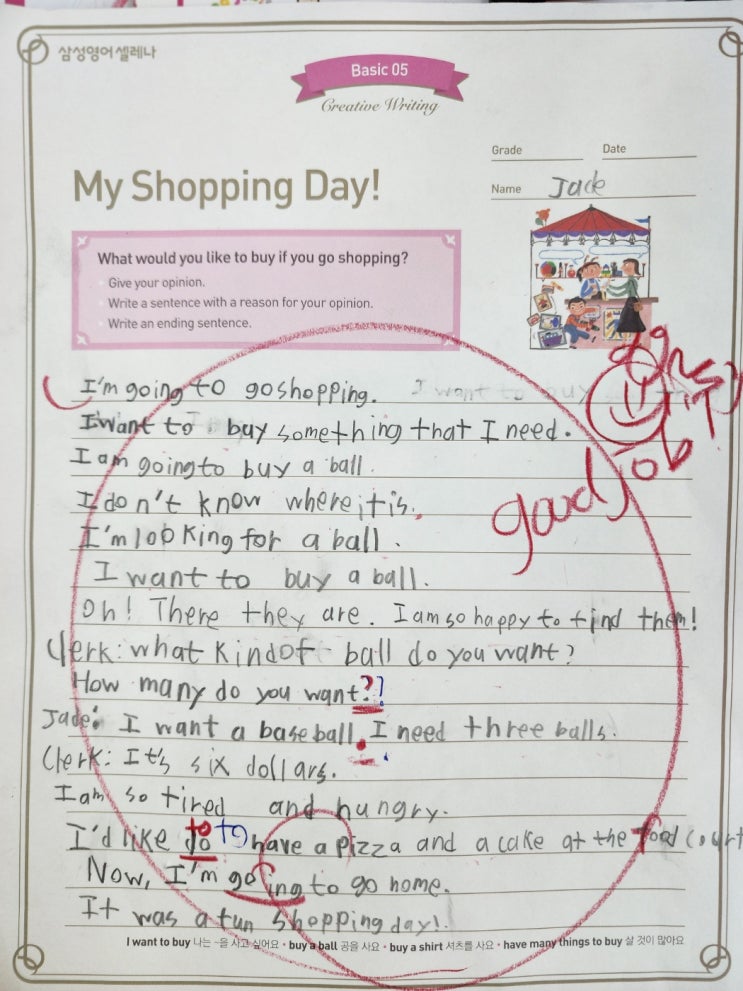 삼성영어 셀레나
Basic 05
Creative Writing
Grade
Date
My Shopping Day!
Name Jade
What would you like to buy if you go shopping?
Give your opinion.
Write a sentence with a reason for your opinion.
Write an ending sentence.
I'm going to go shopping. I want to buy
I want to buy something that I need.
I am going to buy a ball.
good job
I don't know where it is.
I'm looking for a ball.
I want to buy a ball.
Oh! There they are. I am so happy to find them!
Clerk: what kind of ball do you want?
How many do you want??
Jade: I want a baseball. I need three balls.
Clerk: It's six dollars.
I am so tired and hungry.
to
I'd like to to have a pizza and a cake at the food court
Now, I'm going to go home.
It was a fun shopping day!.
I want to buy 나는 ~을 사고 싶어요 • buy a ball 공을 사요 • buy a shirt 셔츠를 사요 • have many things to buy 살 것이 많아요